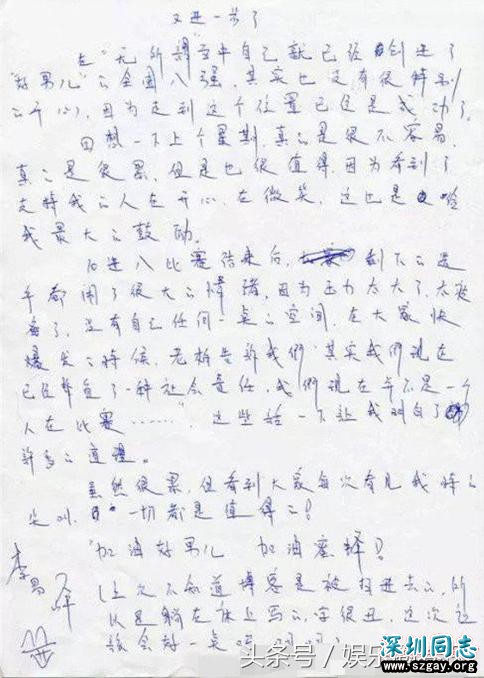 又进一步了
在"无所谓"当中自己就已经创进了
"好男儿"的全国八强。其实也没有很特别
的开心，因为走到这个位置已经是成功了。
回想一下上个星期，真的是很不容易，
真的是很累，但是也很值得，因为看到了
支持我的人在开心，在微笑，这也是给
我最大的鼓励。
10进八比赛结束后，剩下的选
手都闹了很大的情绪，因为压力太大了，太疲
了，没有自己任何一点的空间，在大家快
爆发的时候，老师告诉我们"其实我们现在
已经背负了一种社会责任，我们现在并不是一个
人在比赛……"这些话一下让我明白了
许多的道理。
虽然很累，但看到大家每次看见我时的
尖叫，一切都是值得的！
"加油好男儿 加油塞择！
李易峰
(上次不知道博客是被扫进去的，所
以是躺在床上写的，字很丑，这次应
该会好一点
头条号/娱乐
深圳同志
www.szgay.org